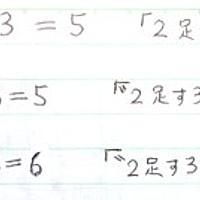 3 = 5 「2足
= 5 『"2足す3
= 6 『"2足す3